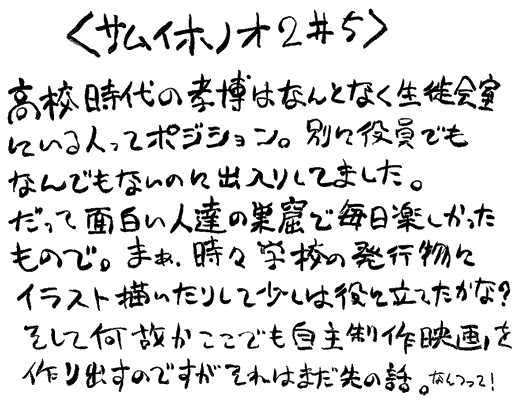 ＜サムイホノオ2＃5＞
高校時代の孝博はなんとなく生徒会室
にいる人ってポジション。別に役員でも
なんでもないのに出入りしてました。
だって面白い人達の巣窟で毎日楽しかった
もので。まぁ、時々学校の発行物に
イラスト描いたりして少しは役に立てたかな?
そして何故かここでも自主制作映画を
作り出すのですがそれはまだ先の話。なんつって!